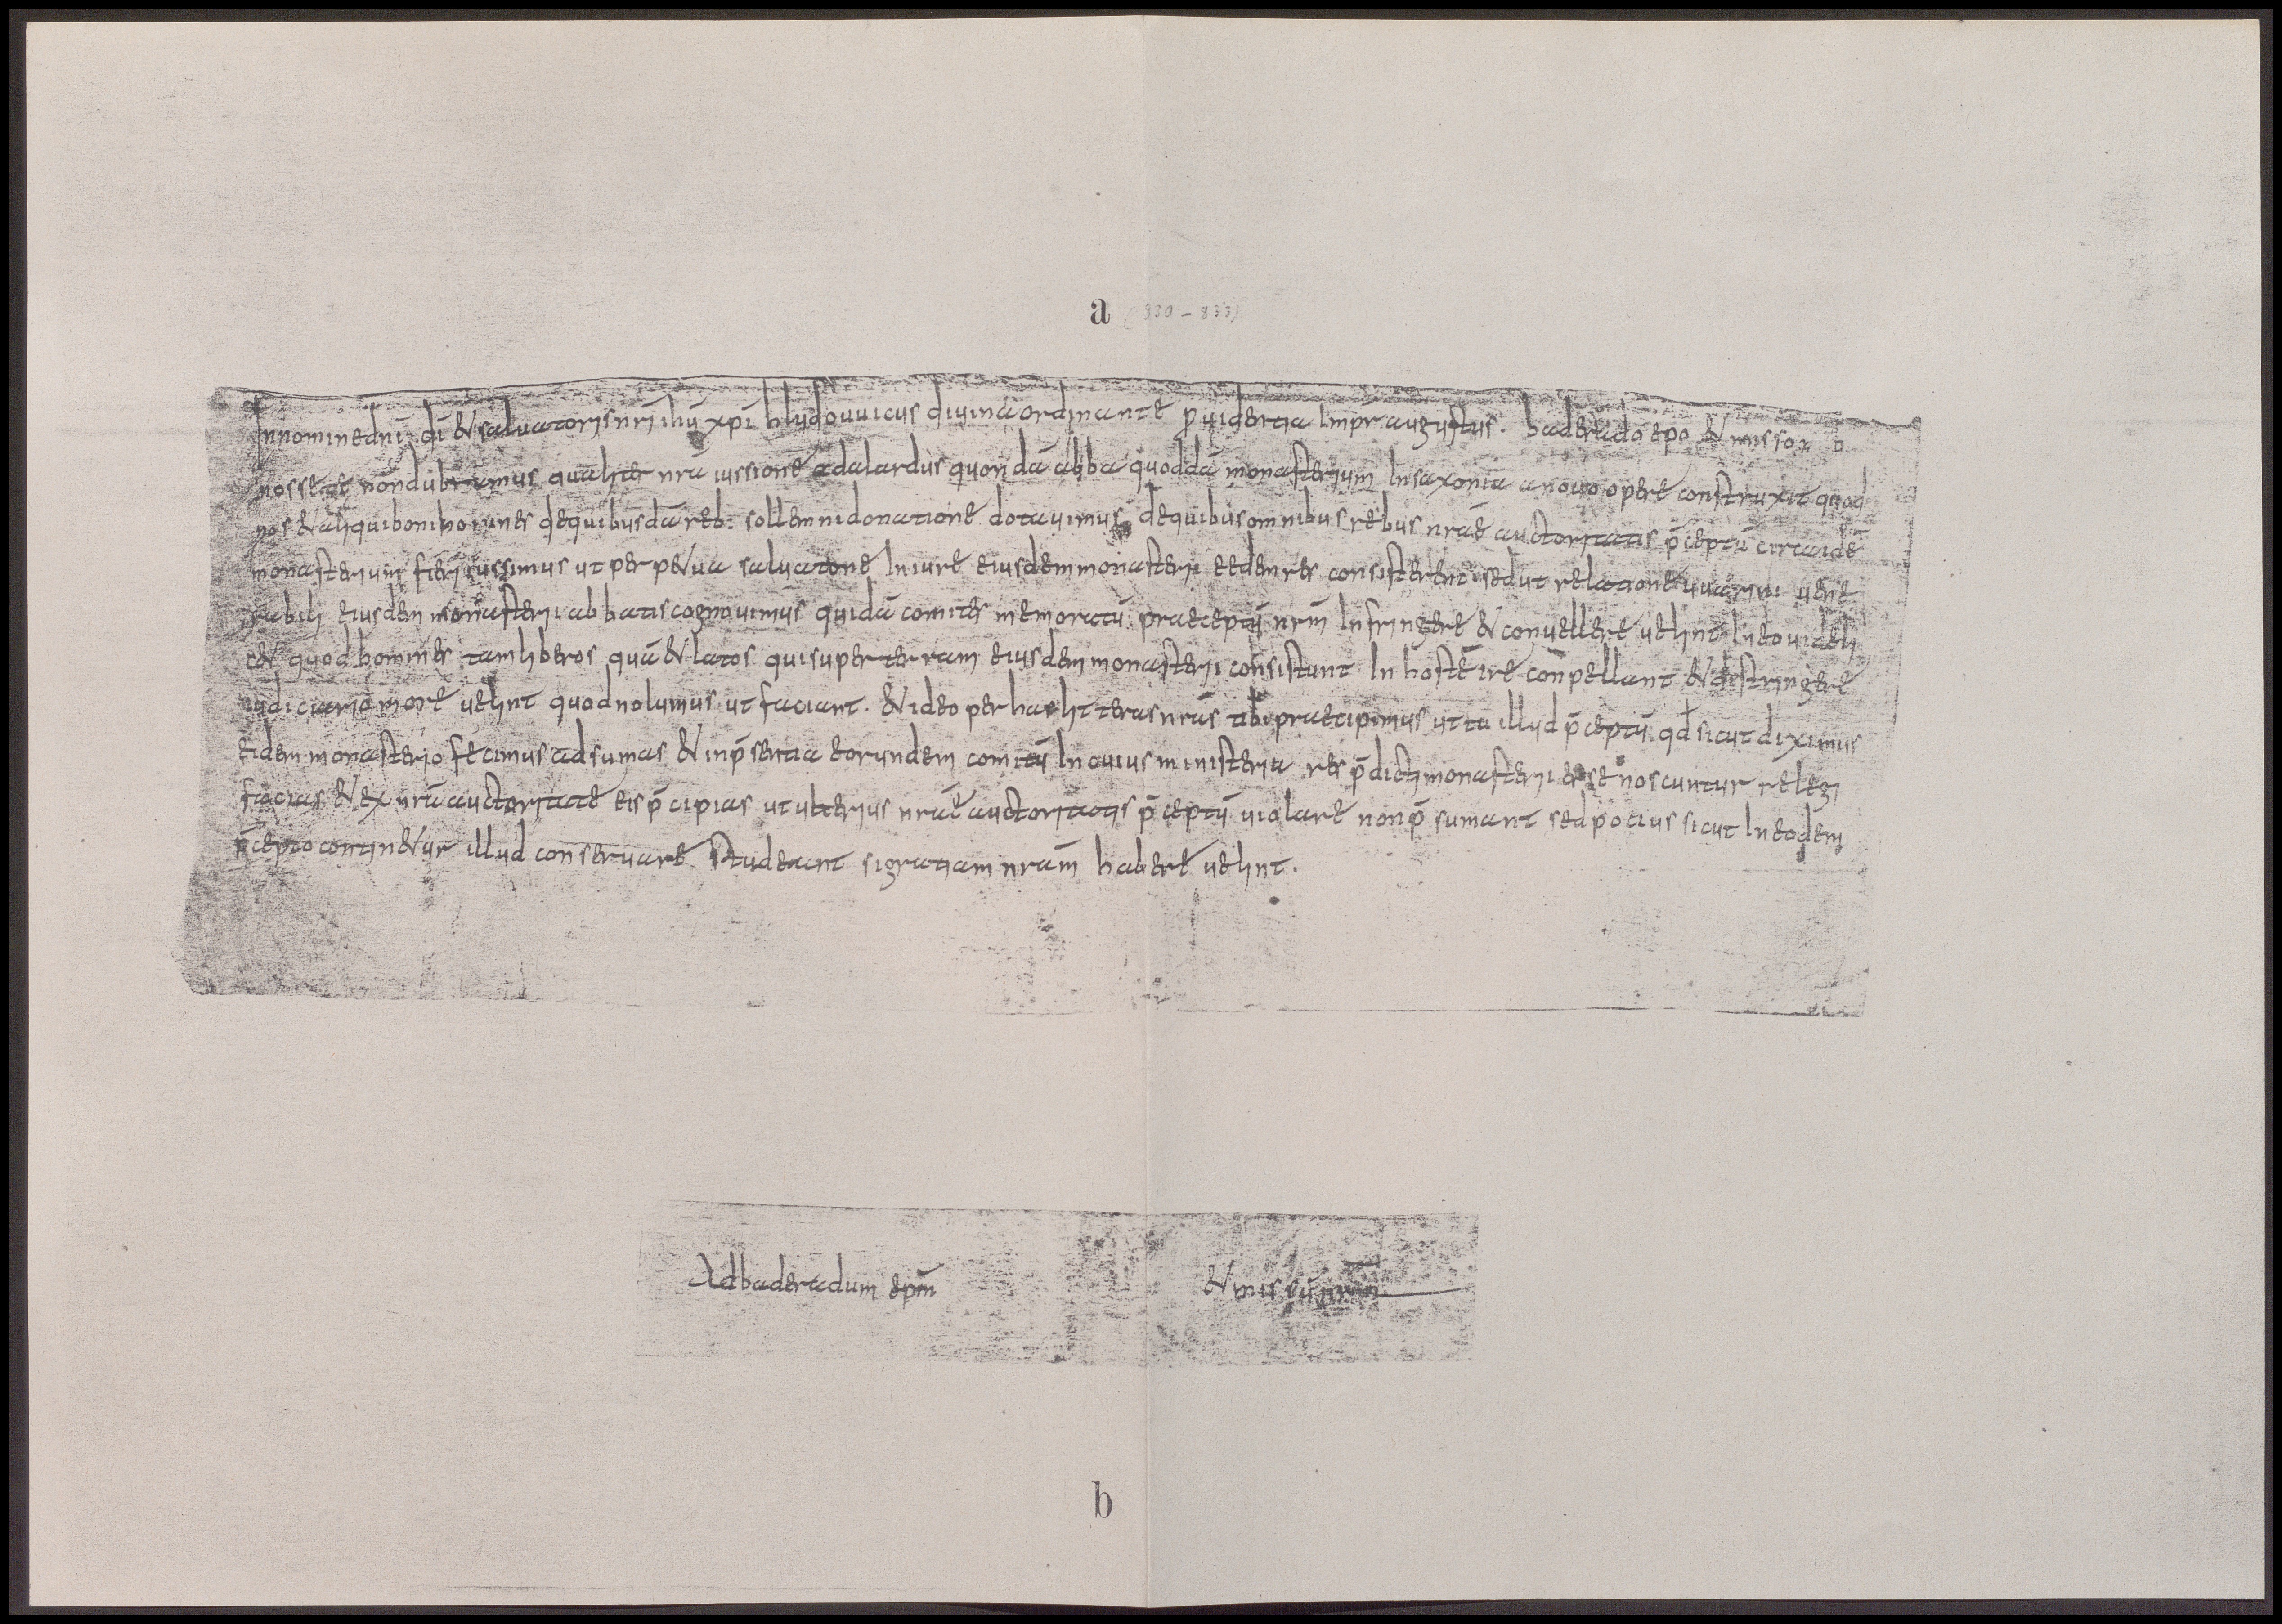 a (830-833)
In nomine dni di & saluatoris nri ihu xpi hludouuicus diuina ordinante puidentia impr augustus. baderado epo & misso n
nosse te non dubitamus qualiter nra iussione adalardus quondā abba quoddā monasterium in saxonia a nouo opere construxit quod
nos & aliqui boni homines de quibusdā reb: sollemni donatione dotauimus de quibus omnibus rebus nrae auctoritatis p̄ceptū circa idē
monasterium fieri iussimus ut perp&ua saluatione in iure eiusdem monasterii eedem res consisterent. sed ut relatione uuarini uene
rabilis eiusdem monasterii abbatis cognouimus quidā comites memoratū praeceptū nrm infringere & conuellere uelint in eo uideli
c& quod homines tam liberos quā & latos qui super terram eiusdem monasterii consistunt in hostē ire conpellant & distringere
iudiciario more uelint quod nolumus ut faciant. & ideo per has litteras nras tibi praecipimus ut tu illud p̄ceptū qd sicut diximus
eidem monasterio fecimus adsumas & in p̄sentia eorundem comitū in cuius ministeria res p̄dicti monasterii esse noscuntur relegi
facias & ex nra auctoritate eis p̄cipias ut ulterius nrae auctoritatis p̄ceptū uiolare non p̄sumant sed pocius sicut in eodem
p̄cepto contin&ur illud conseruare studeant si gratiam nram habere uelint.
Ad baderadum epm & missū nrm
b